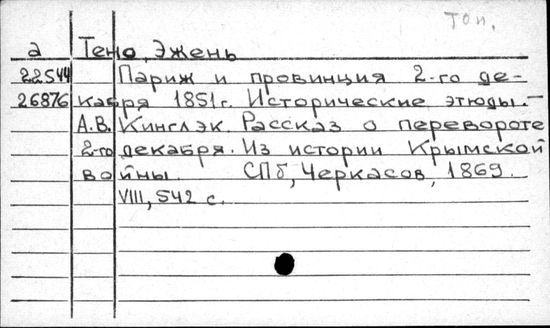 Топ.
а Тено, Эжень
22544 Париж и провинция 2-го де-
26876 кабря 1851г. Исторические этюды.-
А.В. Кинглэк. Рассказ о перевороте
2-го декабря. Из истории Крымской
войны. СПб, Черкасов, 1869.
VIII, 542 с.